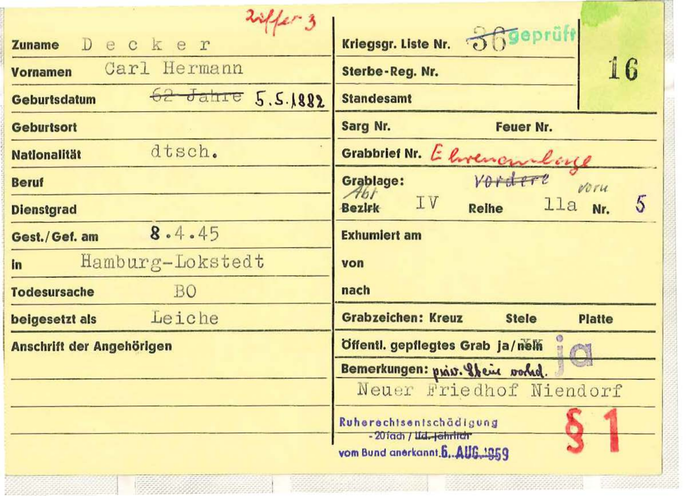 Ziffer 3
Zuname Decker
Vornamen Carl Hermann
Geburtsdatum 62 Jahre 5.5.1882
Geburtsort
Nationalität dtsch.
Beruf
Dienstgrad
Gest./Gef. am 8.4.45
in Hamburg-Lokstedt
Todesursache BO
beigesetzt als Leiche
Anschrift der Angehörigen
Kriegsgr. Liste Nr. 36 geprüft
16
Sterbe-Reg. Nr.
Standesamt
Sarg Nr. Feuer Nr.
Grabbrief Nr. Ehrenanlage
Grablage: vordere
Abt vorn
Bezirk IV Reihe 11a Nr. 5
Exhumiert am
von
nach
Grabzeichen: Kreuz Stele Platte
Öffentl. gepflegtes Grab ja/nein ja
Bemerkungen: priv. Stein vorhd.
Neuer Friedhof Niendorf
Ruherechtsentschädigung
- 20fach / lfd. jährlich
vom Bund anerkannt 6. AUG. 1959
§ 1